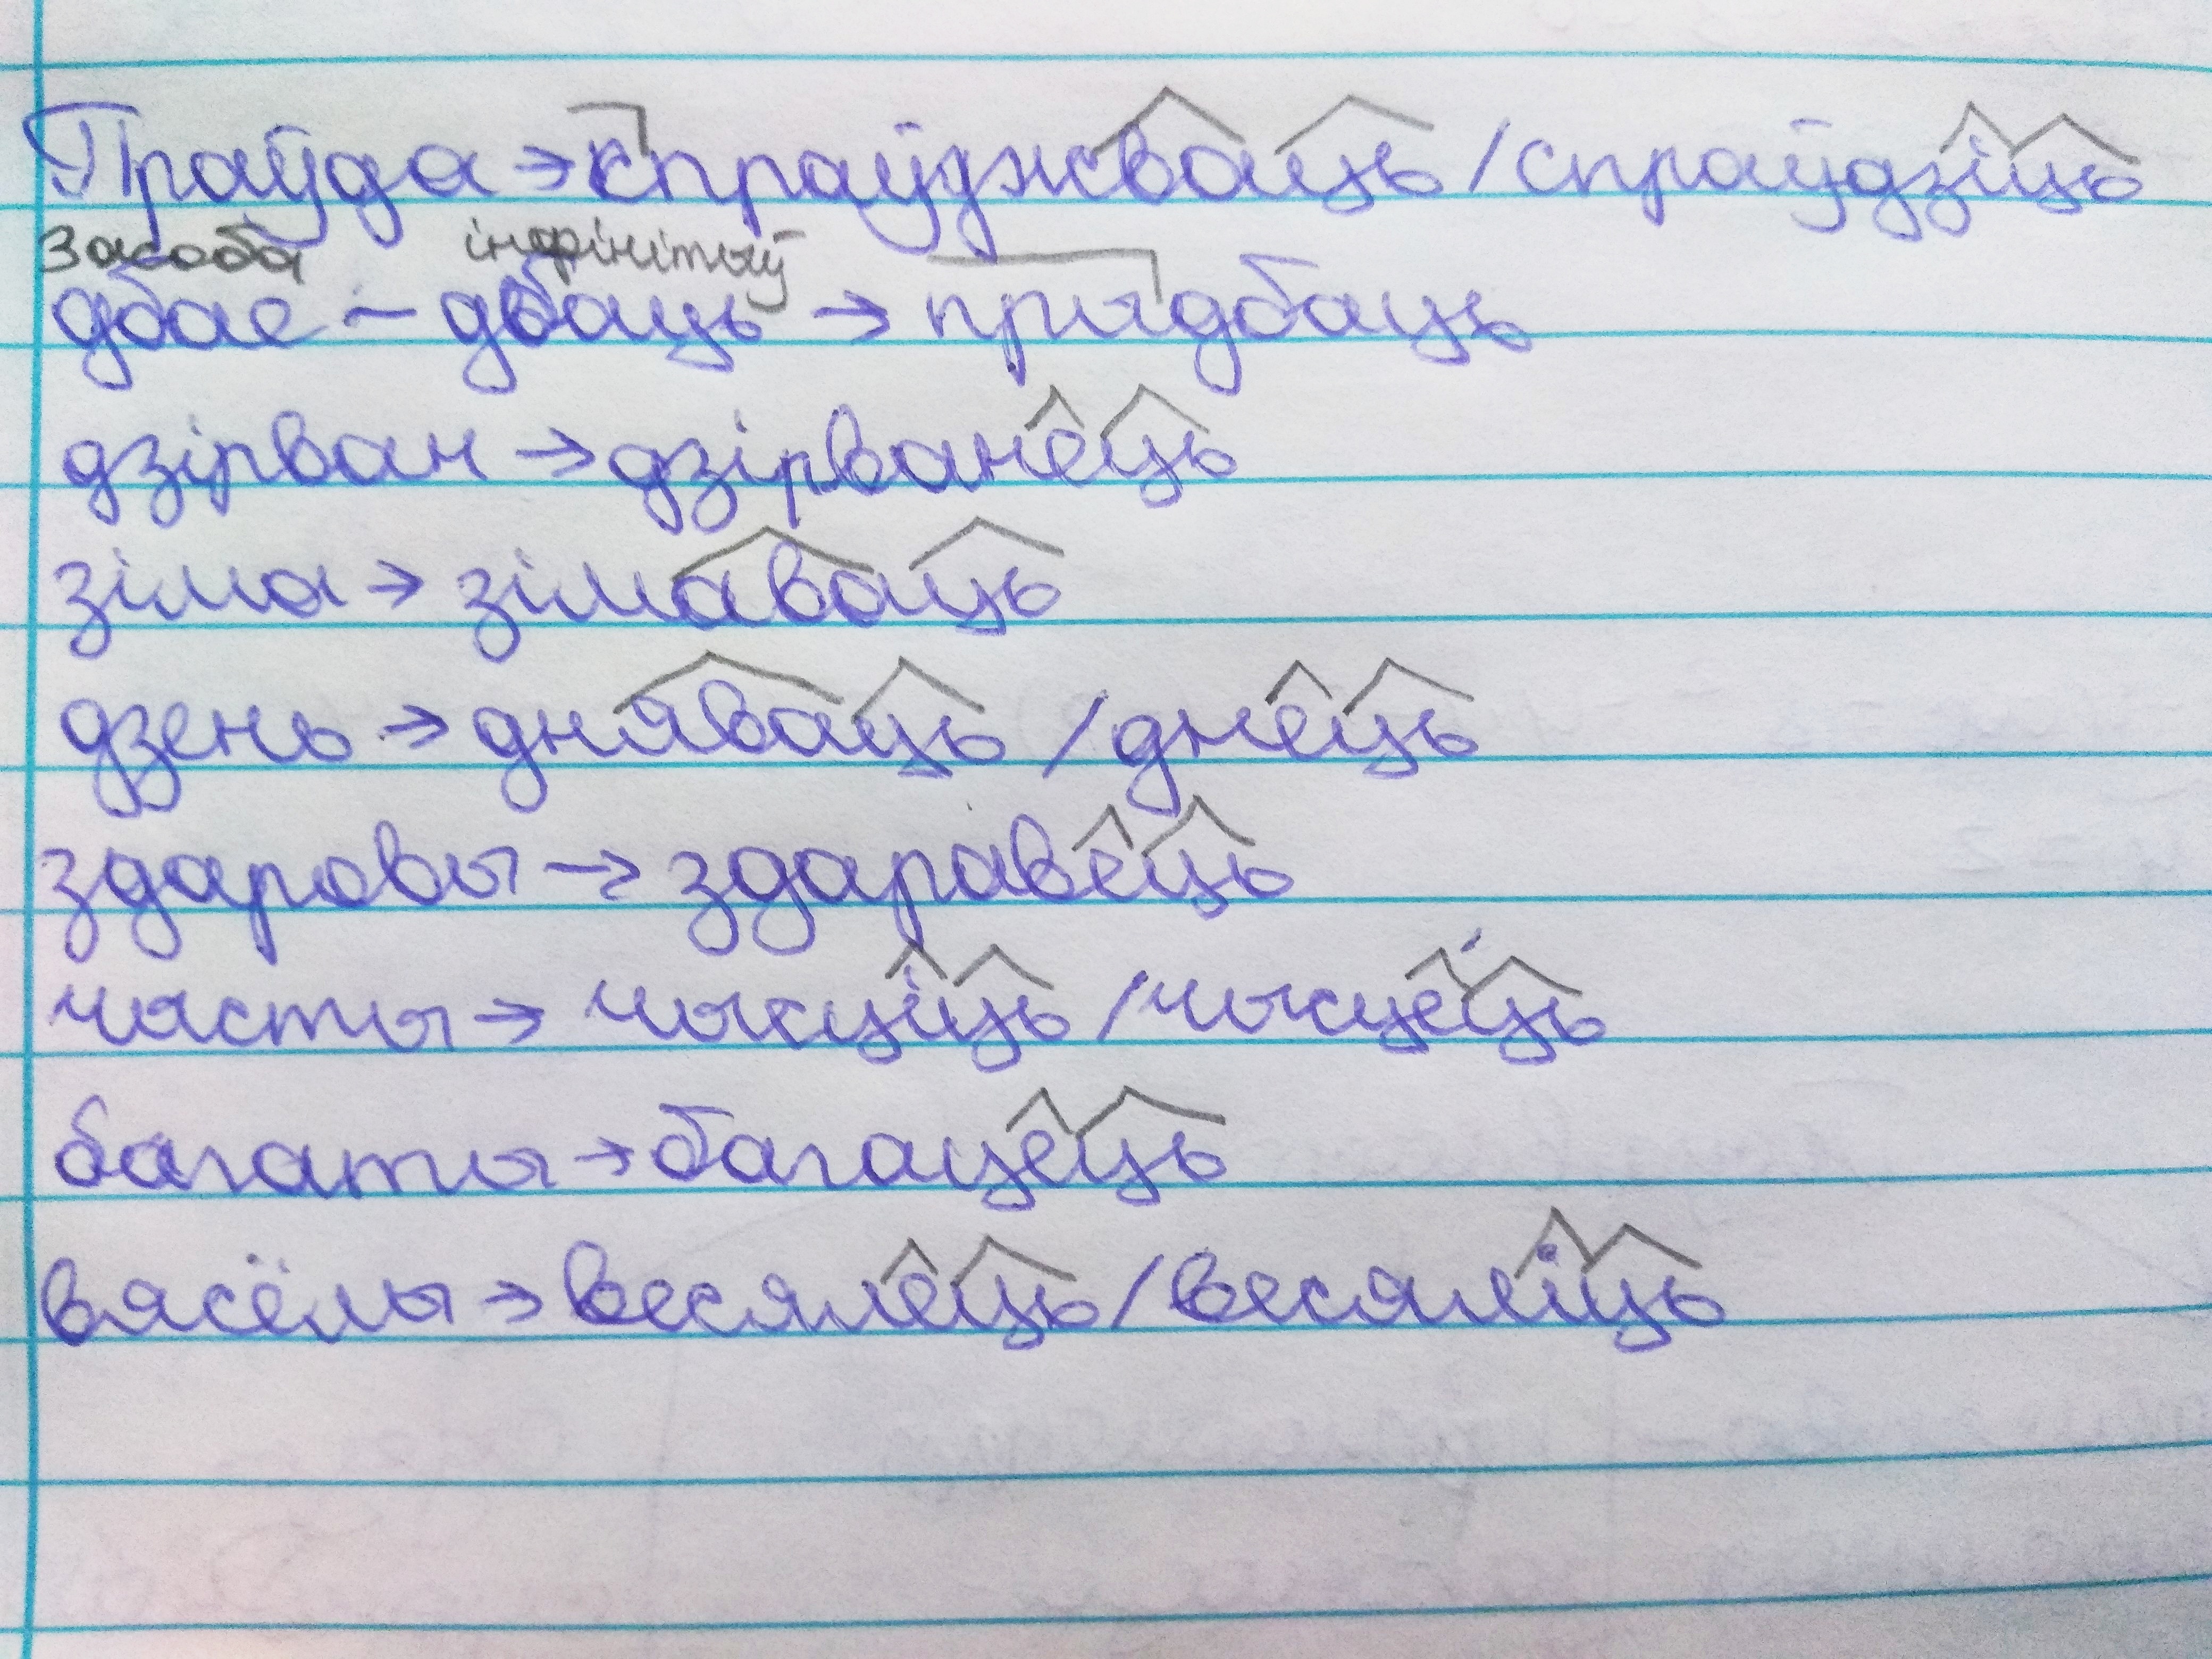 Праўда → спраўджваць / спраўдзіць
3 асоба інфінітыў
дбае – дбаць → прыдбаць
дзірван → дзірванець
зіма → зімаваць
дзень → дняваць / днець
здаровы → здаравець
чысты → чысціць / чысцець
багаты → багацець
вясёлы → весялець / весяліць